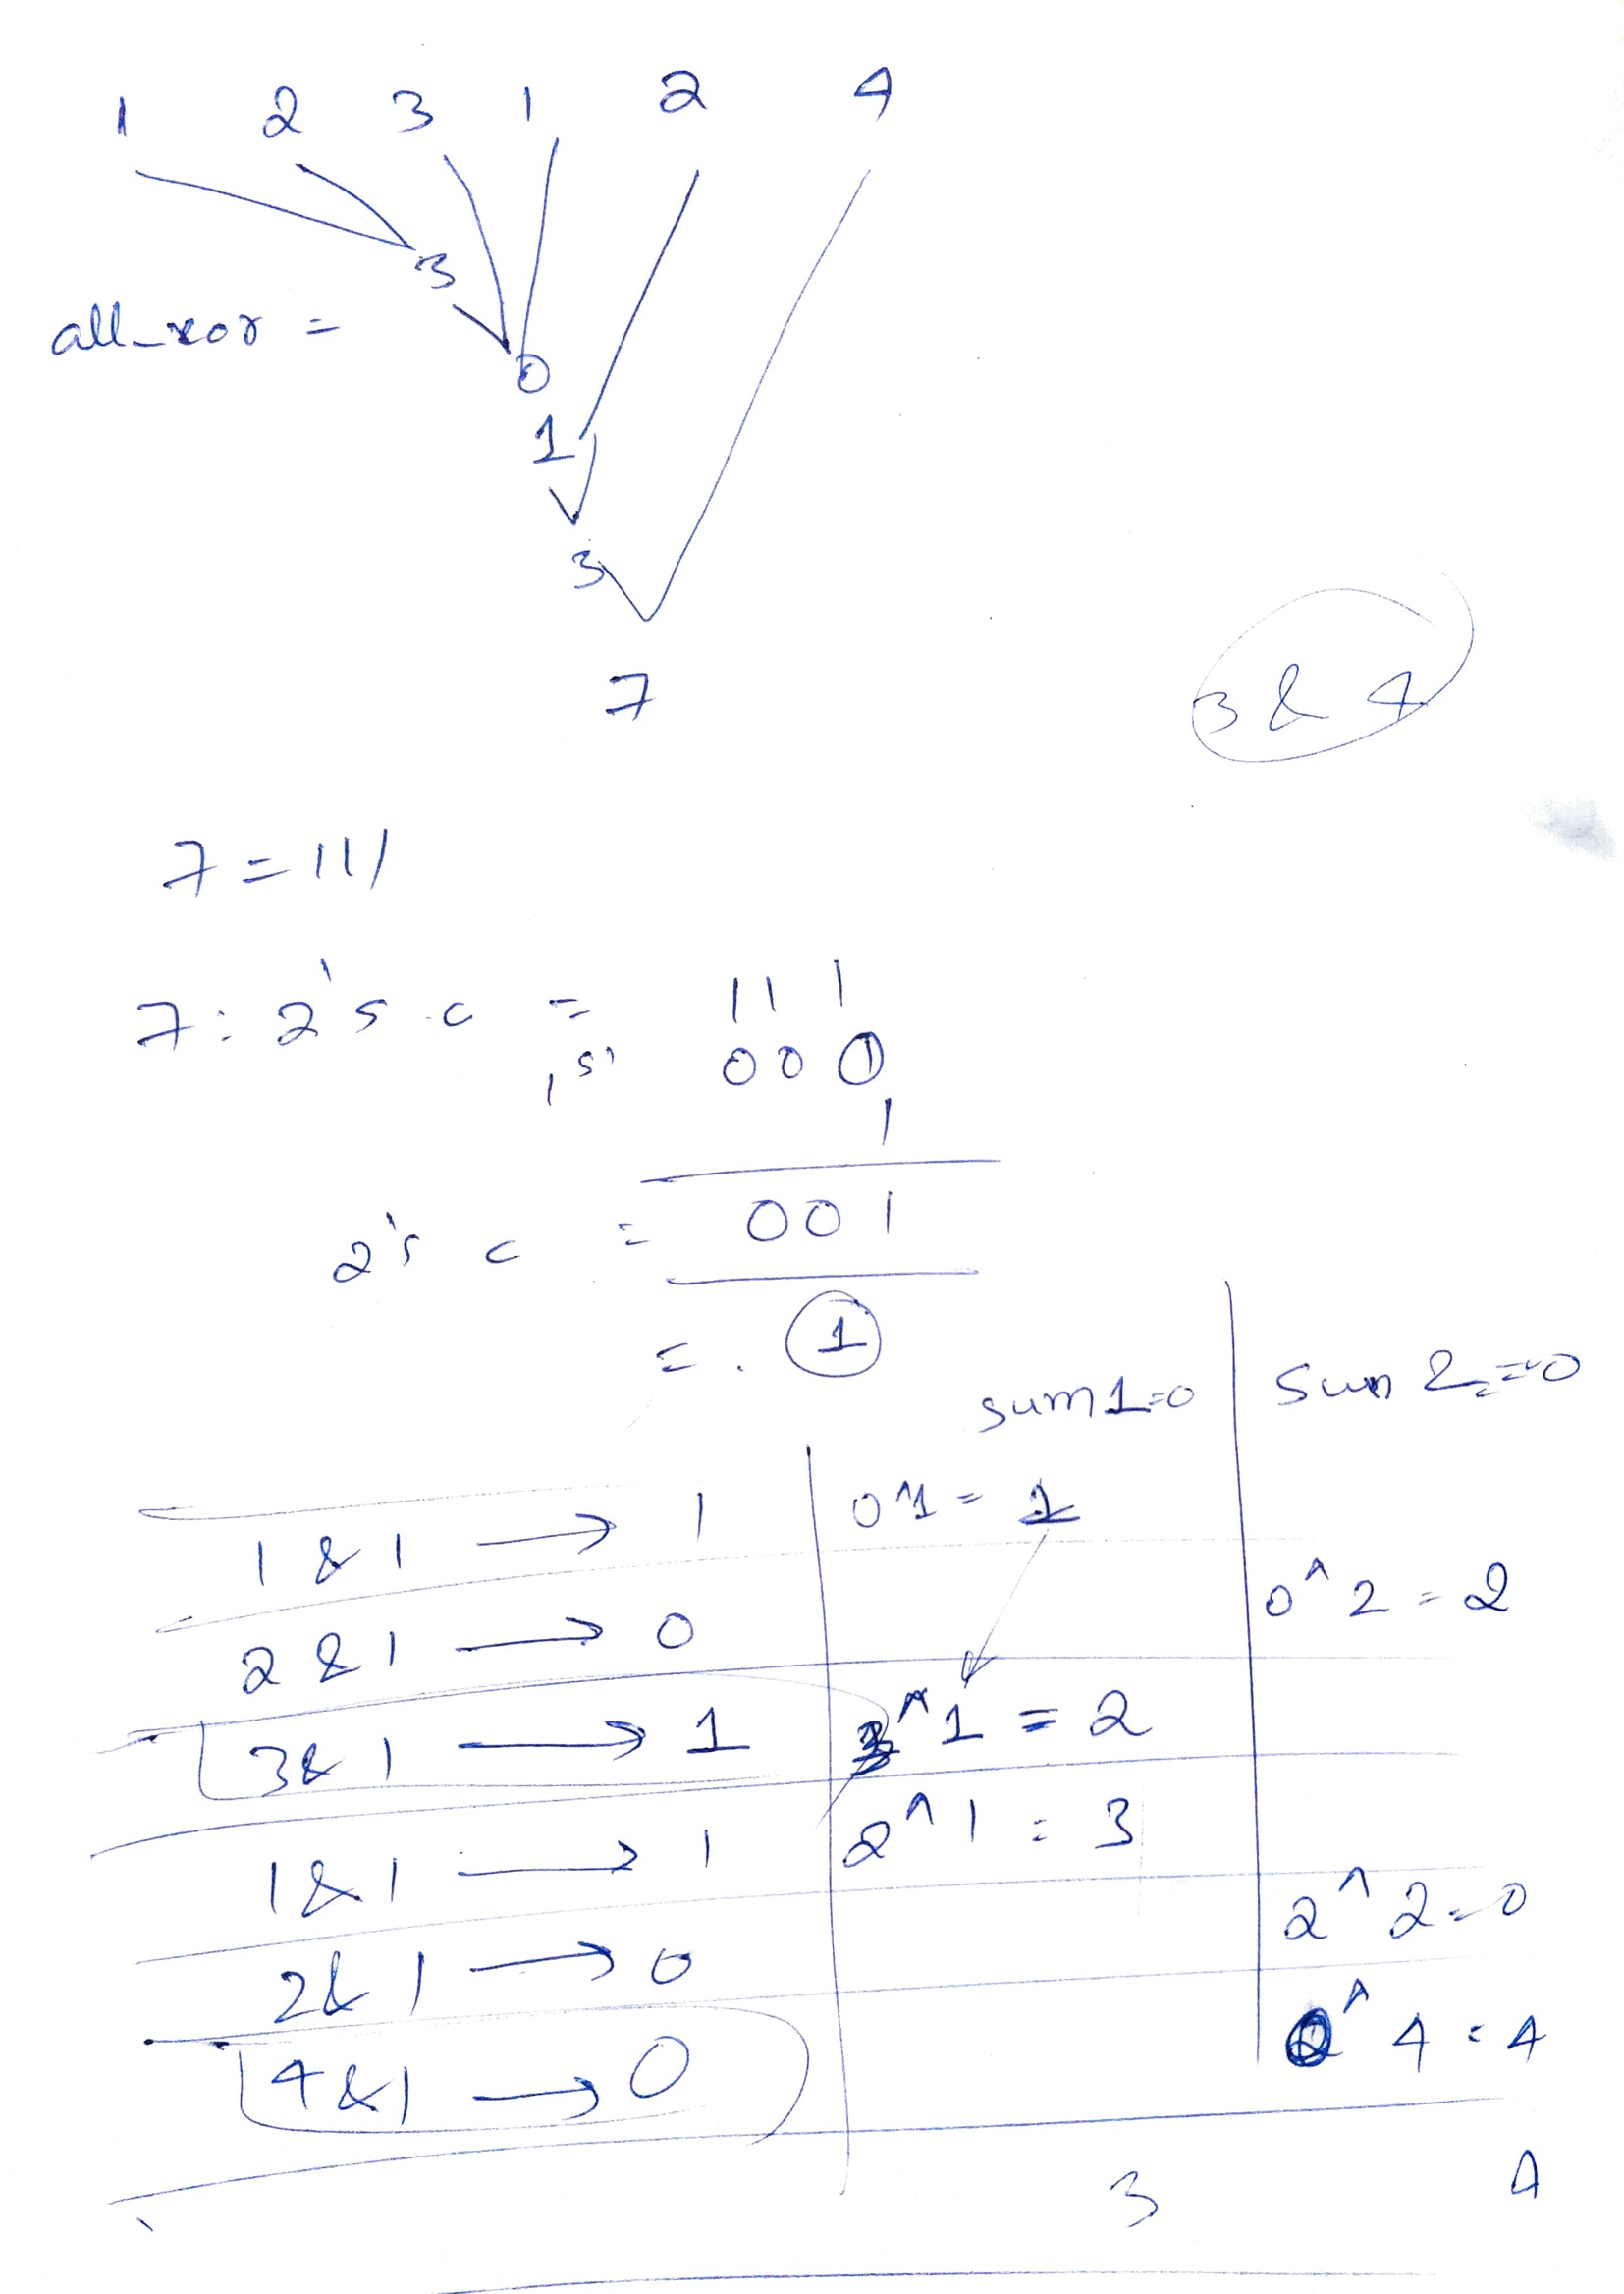 1 2 3 1 2 4
3
all_xor =
0
1
3
7
3 & 4
7 = 111
7 : 2's c = 111
1s' 000
1
2's c = 001
= 1
sum1=0 sum2=0
1 & 1 → 1 0^1 = 1
2 & 1 → 0 0^2 = 2
3 & 1 → 1 3^1 = 2
1 & 1 → 1 2^1 = 3
2 & 1 → 0 2^2=0
4 & 1 → 0 0^4 = 4
3 4